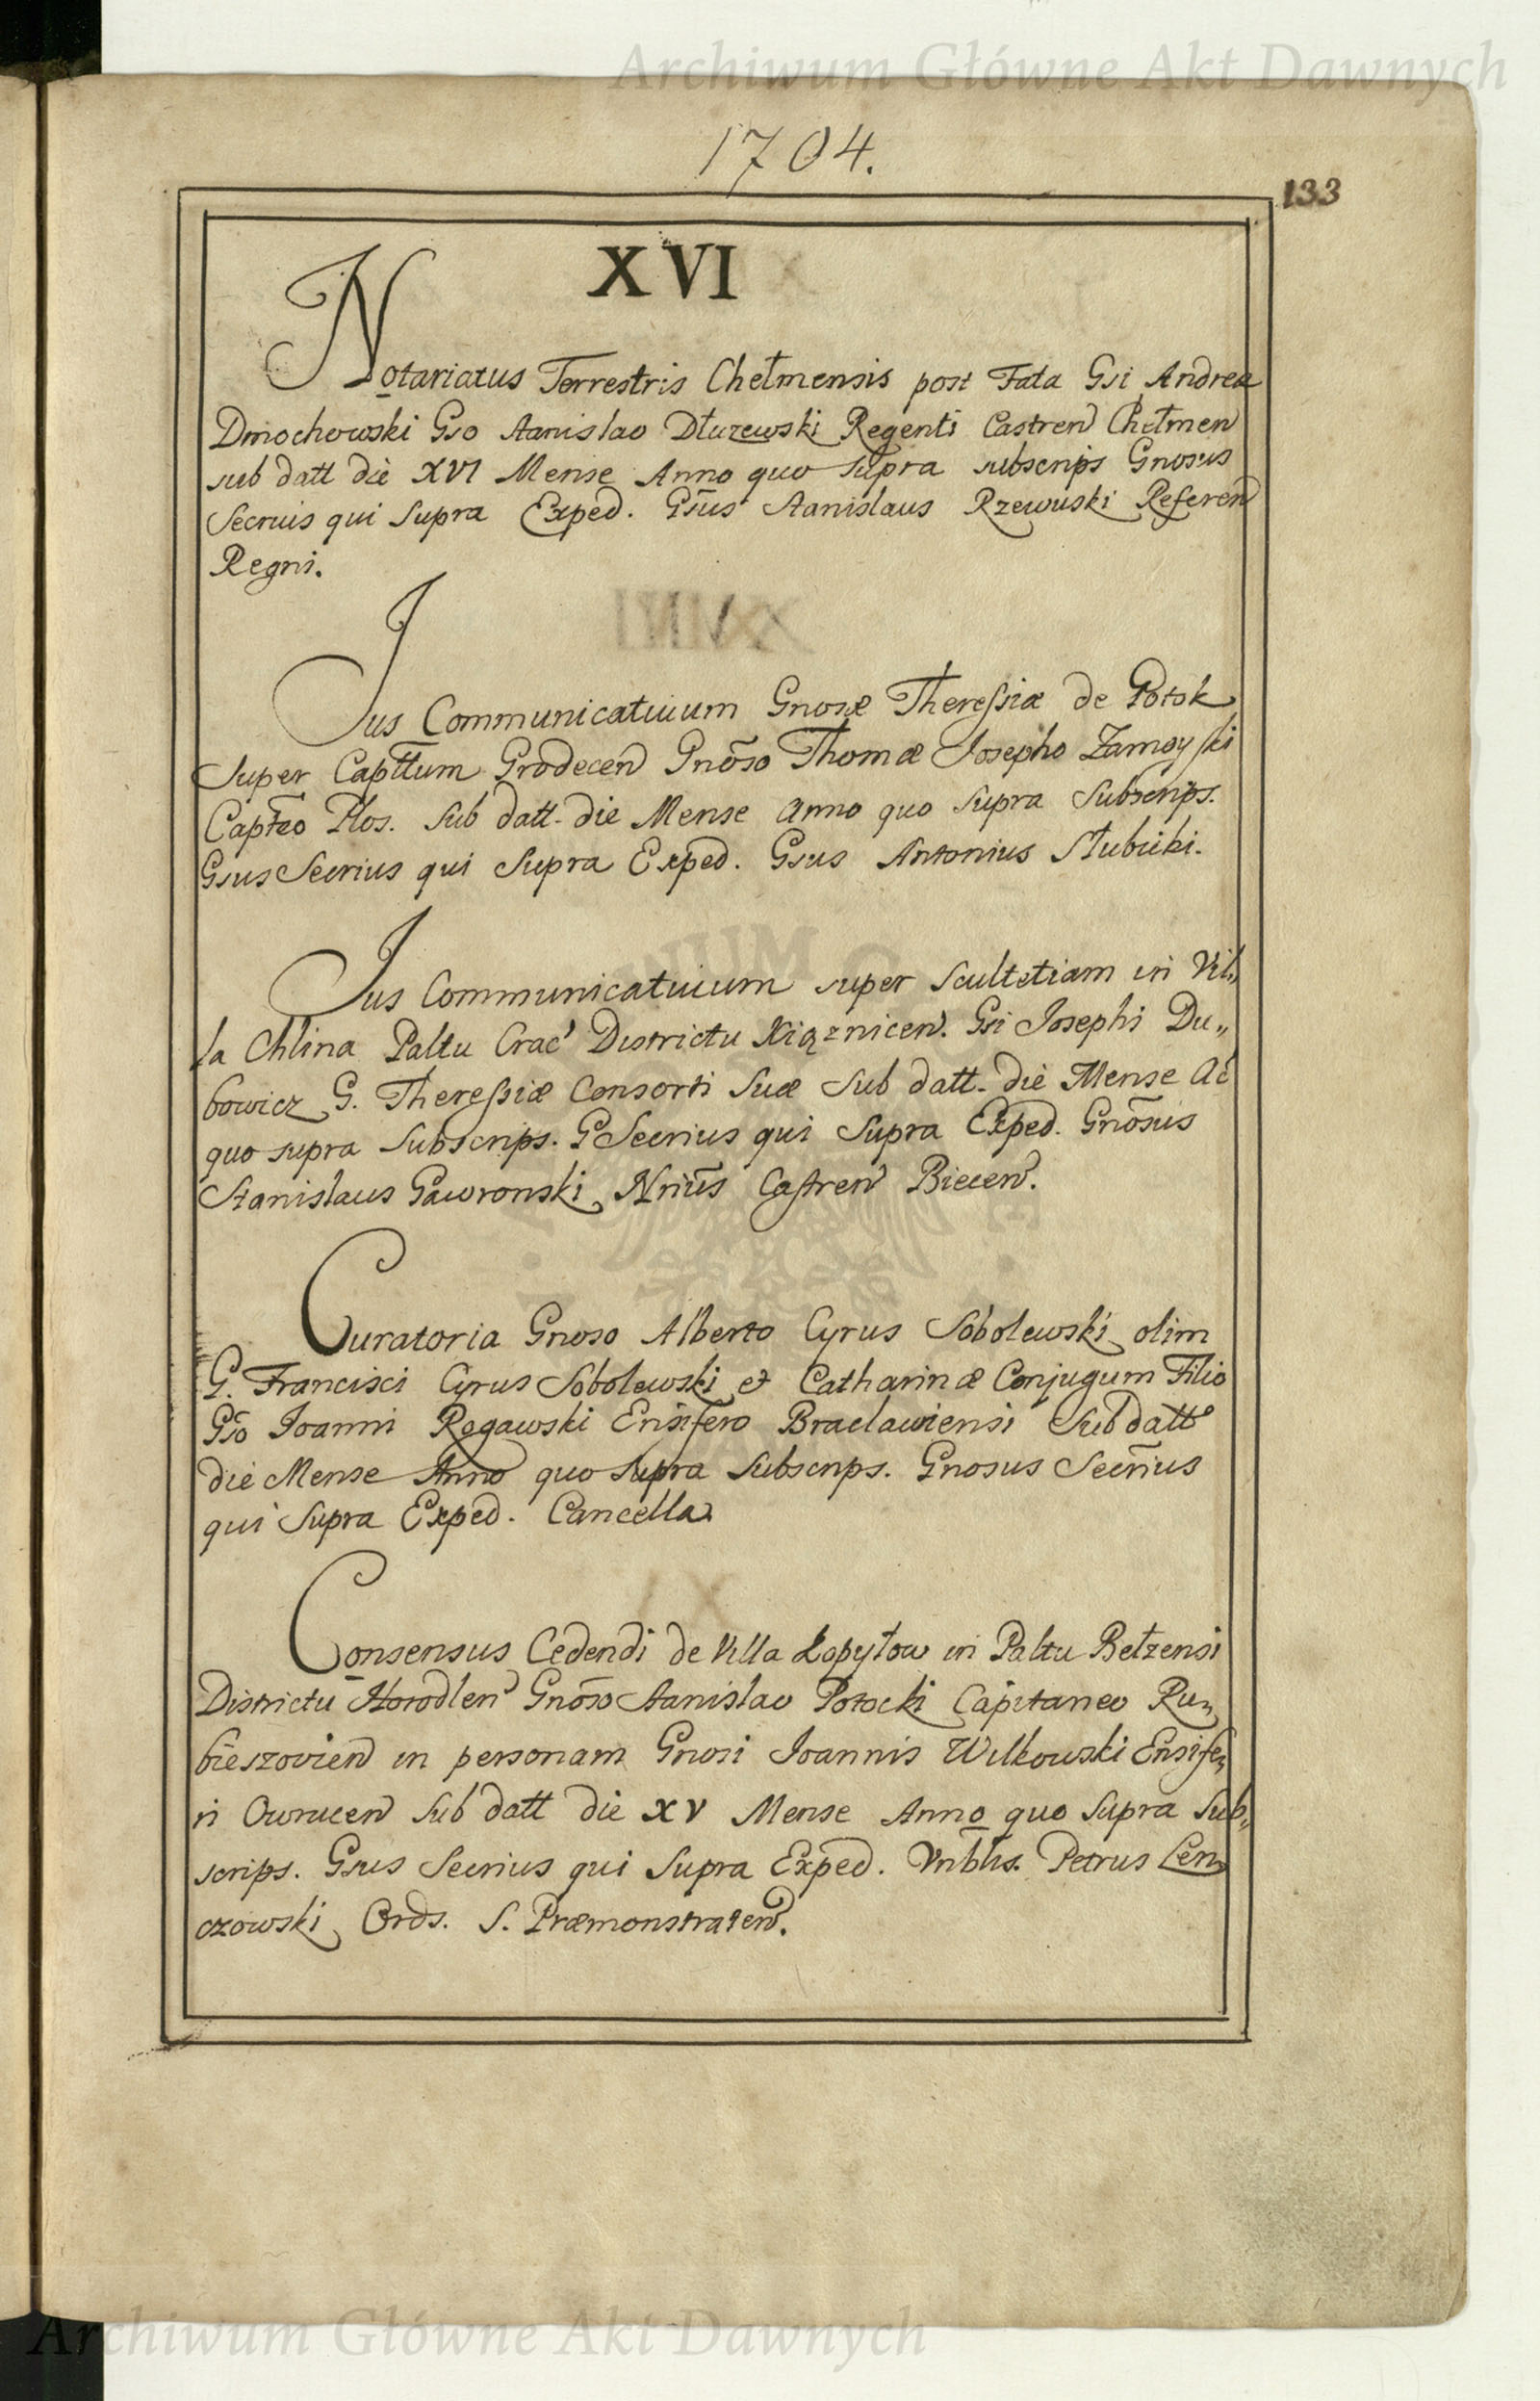 Archiwum Główne Akt Dawnych
1704.
133
XVI
Notariatus Terrestris Chełmensis post Fata Gsi Andrea
Dmochowski Gso Stanislao Dłuzewski Regenti Castren Chełmen
sub datt die XVI Mense Anno quo supra subscrips Gnosus
Secrius qui supra Exped. Gsus Stanislaus Rzewuski Referen
Regni.
Jus Communicativum Gnosæ Theressiæ de Potok
super Capttum Grodecen Gnoso Thomæ Josepho Zamoyski
Capteo Plos. sub datt. die Mense Anno quo supra Subscrips.
Gsus Secrius qui supra Exped. Gsus Antonius Słubicki.
Jus Communicativum super Scultetiam in Vil„
la Chlina Paltu Crac Districtu Xiąznicen. Gsi Josephi Du„
bowicz G. Theressiæ Consorti suæ sub datt. die Mense Ao
quo supra Subscrips. G Secrius qui supra Exped. Gnosus
Stanislaus Gawronski Nrius Castren Biecen.
Curatoria Gnoso Alberto Cyrus Sobolewski olim
G. Francisci Cyrus Sobolewski et Catharinæ Conjugum Filio
Gso Joanni Rogawski Ensifero Braclawiensi sub datt
die Mense Anno quo supra Subscrips. Gnosus Secrius
qui supra Exped. Cancella.
Consensus Cedendi de Villa Łopyłow in Paltu Bełzensi
Districtu Horodlen Gnoso Stanislao Potocki Capitaneo Ru„
bieszovien in personam Gnosi Joannis Wilkowski Ensife„
ri Owrucen sub datt die XV Mense Anno quo supra Sub„
scrips. Gsus Secrius qui supra Exped. Vnblis. Petrus Len„
czowski Ords. S. Præmonstraten.
Archiwum Główne Akt Dawnych